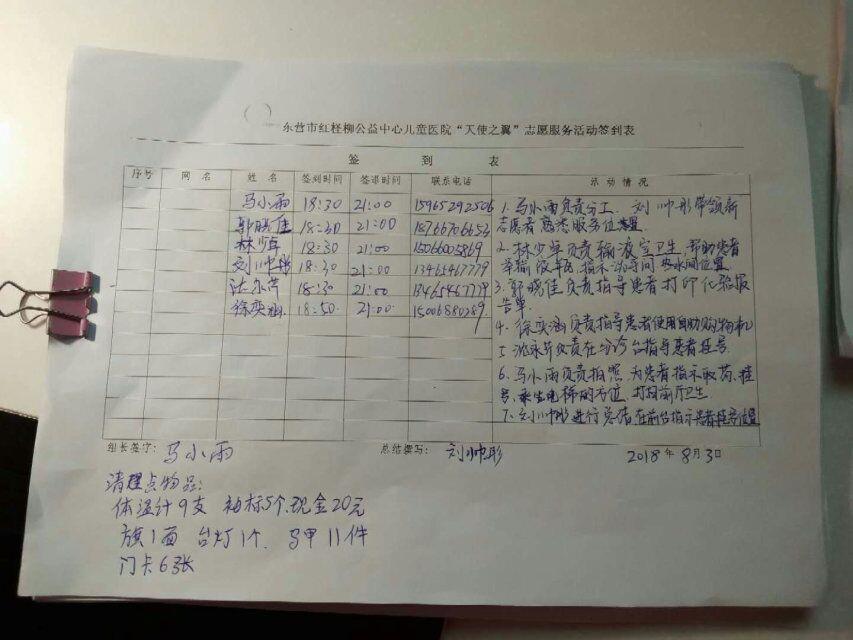 东营市红柽柳公益中心儿童医院“天使之翼”志愿服务活动签到表
签 到 表
序号 网 名 姓 名 签到时间 签退时间 联系电话 活 动 情 况
马小雨 18:30 21:00 15965292506
郭晓佳 18:30 21:00 18766706653
林少军 18:30 21:00 15066005869
刘帅彤 18:30 21:00 13465467779
18:30 21:00 13465467779
徐奕涵 18:50 21:00 15006880289
1.马小雨负责分工. 刘帅彤带领新
志愿者熟悉服务位置
2.林少军负责输液室卫生,帮助患者
举输液瓶,指示洗手间 热水间位置
3.郭晓佳负责指导患者打印化验报
告单
4.徐奕涵负责指导患者使用自助购物机
负责在分诊台指导患者挂号
6.马小雨负责拍照,为患者指示取药、挂
号、乘坐电梯的方位,打扫前厅卫生
7.刘帅彤进行总结,在前台指示患者挂号位置
组长签字: 马小雨 总结撰写: 刘帅彤 2018年8月3日
清理点物品:
体温计9支 袖标5个.现金20元
旗1面 台灯1个. 马甲11件
门卡6张